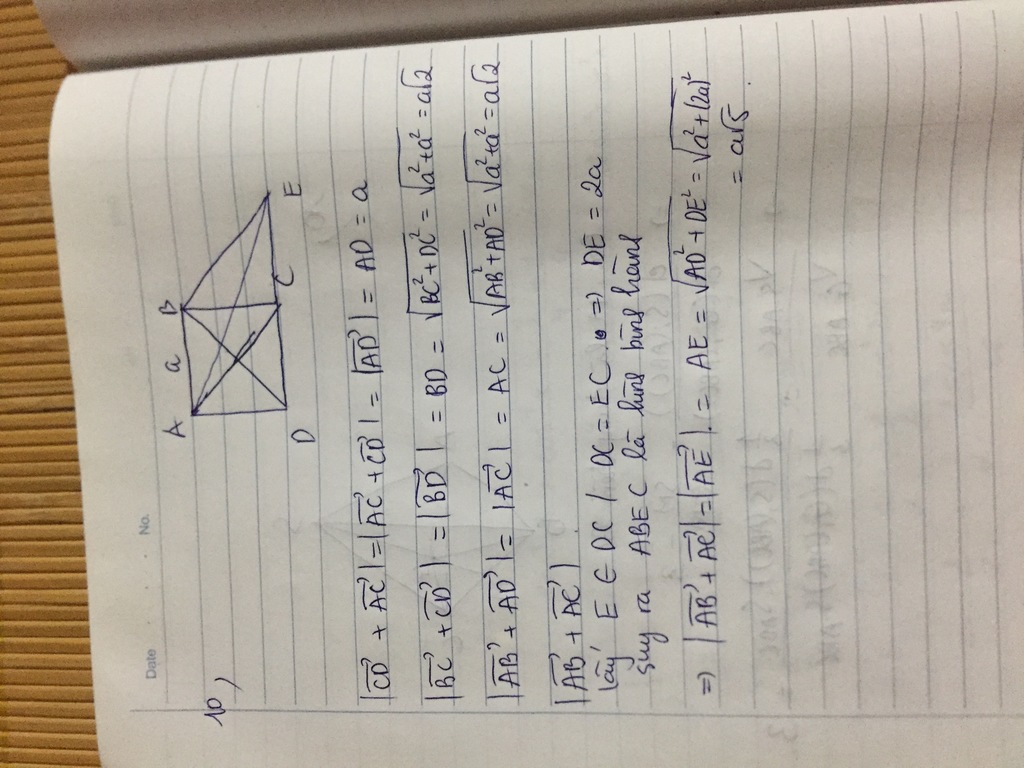 Date No.
A a B
10,
D C E
|CD→ + AC→| = |AC→ + CD→| = |AD→| = AD = a
|BC→ + CD→| = |BD→| = BD = √(BC² + DC²) = √(a² + a²) = a√2
|AB→ + AD→| = |AC→| = AC = √(AB² + AD²) = √(a² + a²) = a√2
|AB→ + AC→|
lấy E ∈ DC / DC = EC. => DE = 2a
suy ra ABEC là hình bình hành
=> |AB→ + AC→| = |AE→|. = AE = √(AD² + DE²) = √(a² + (2a)²)
= a√5.